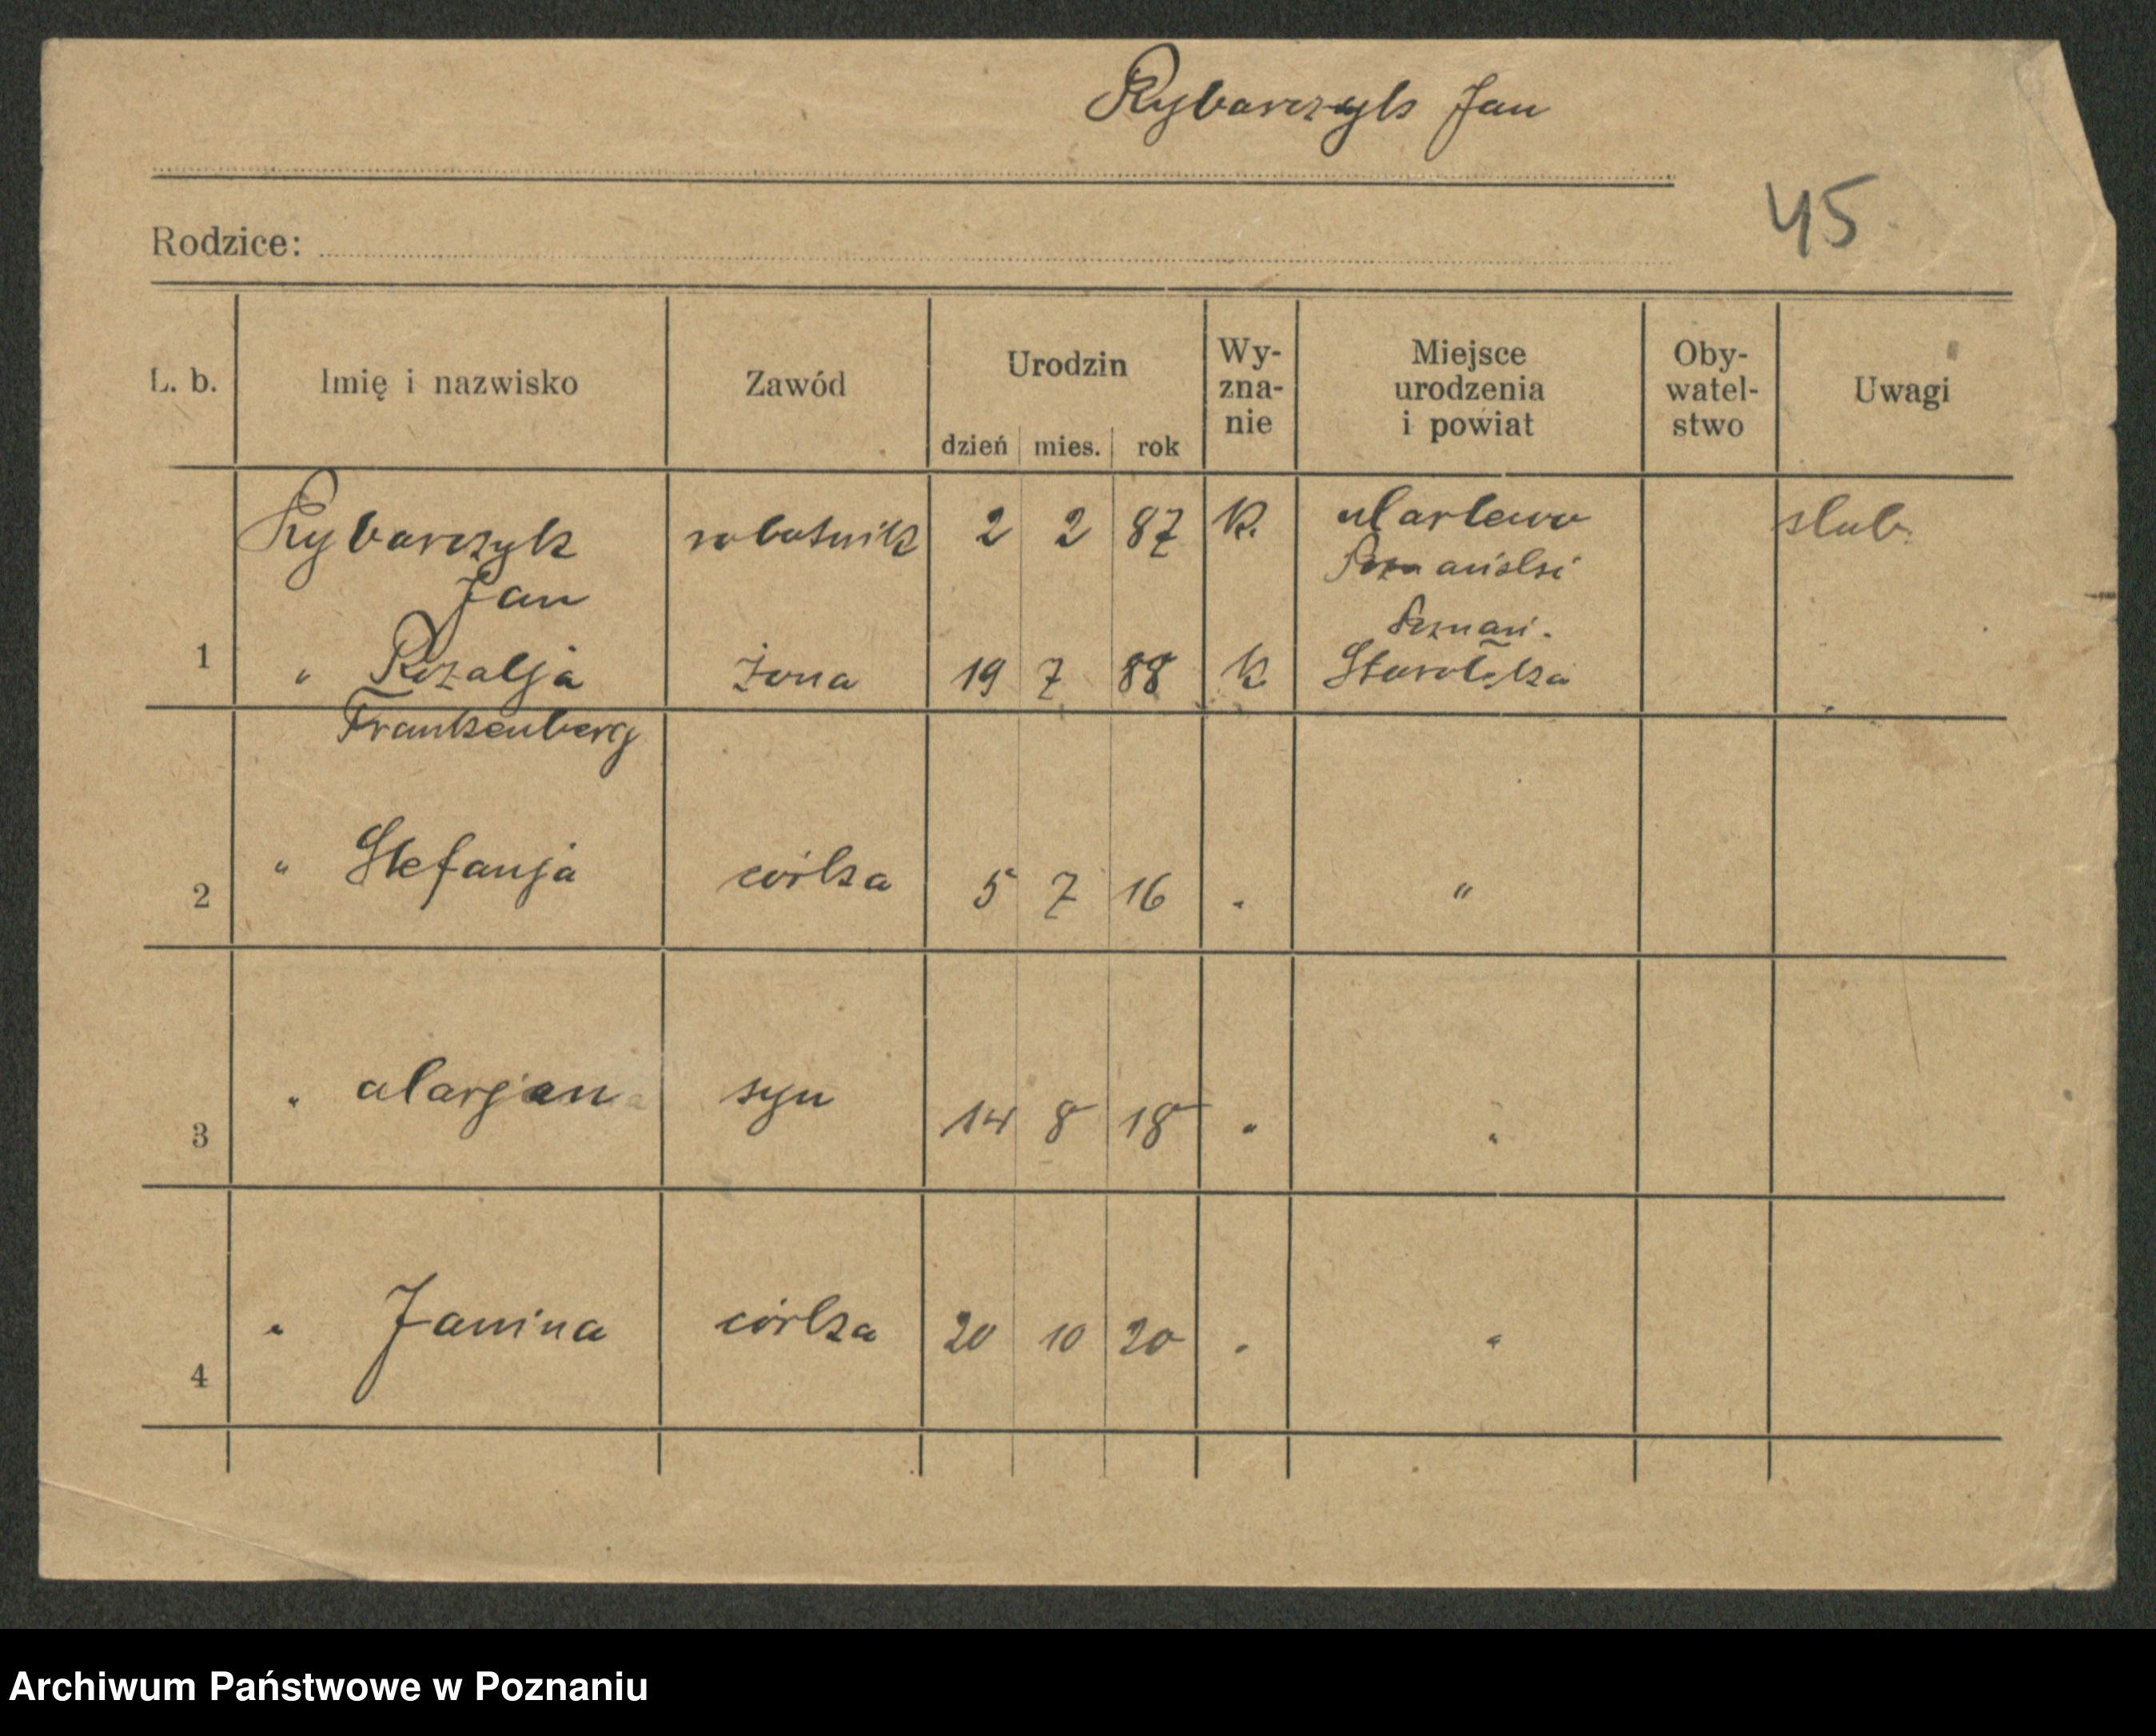 Rybarczyk Jan
45
Rodzice:
L. b.
Imię i nazwisko
Zawód
Urodzin
dzień mies. rok
Wy-
zna-
nie
Miejsce
urodzenia
i powiat
Oby-
watel-
stwo
Uwagi
Rybarczyk robotnik 2 2 87 K. Marlewo slub.
Jan
Poznań.
1 " Rozalja żona 19 7 88 K
Frankenberg
2 " Stefanja córka 5 7 16 " "
3 " Marjan syn 14 8 18 " "
4 " Janina córka 20 10 20 " "
Archiwum Państwowe w Poznaniu